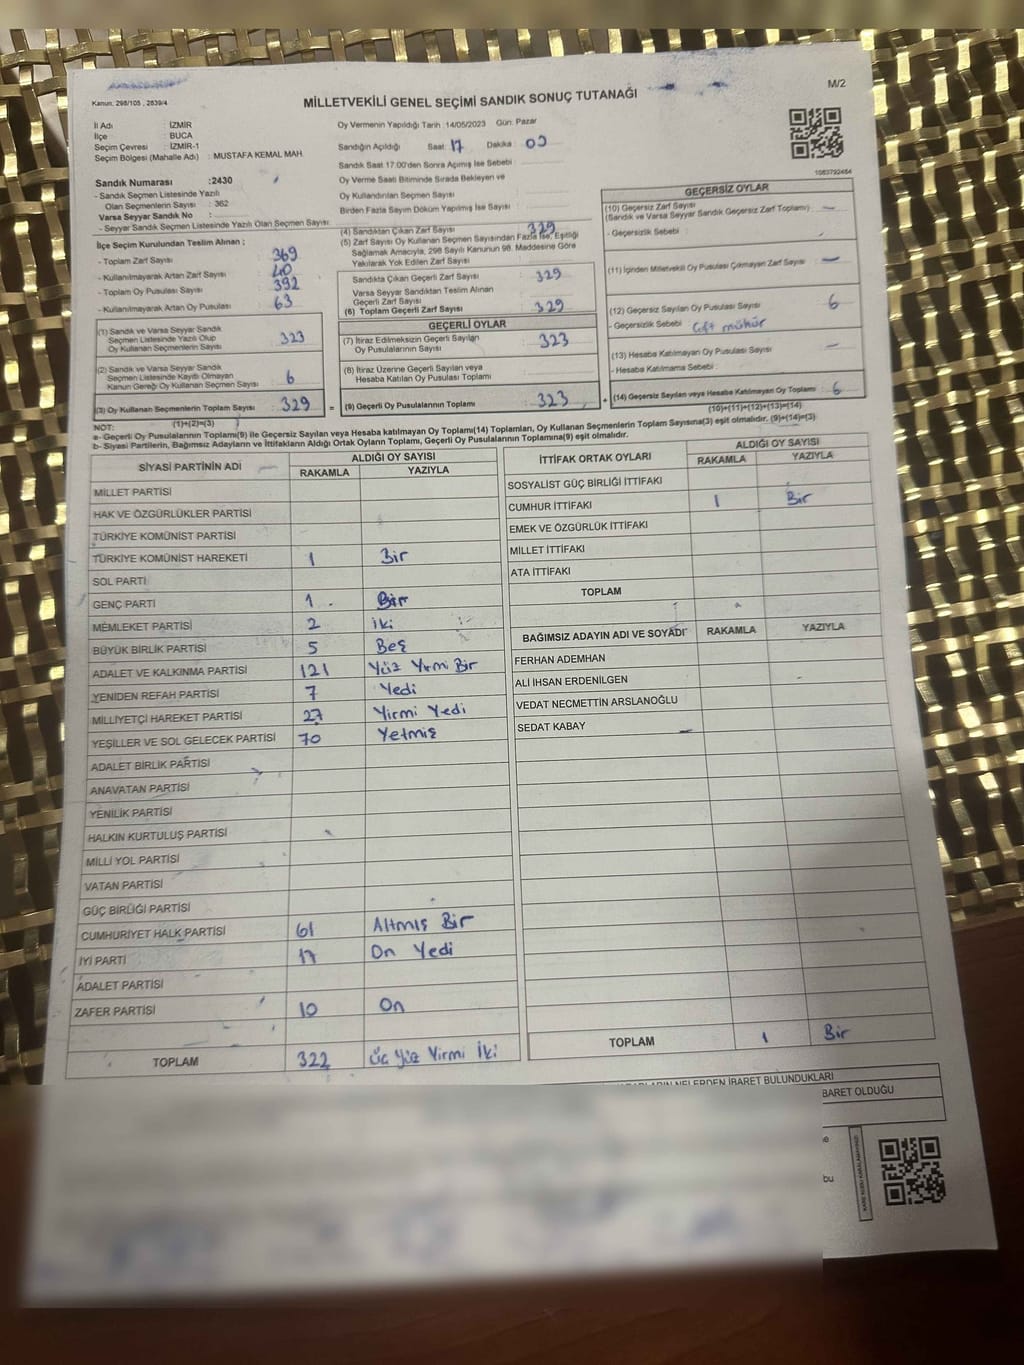 Kanun, 298/105 , 2839/4
MİLLETVEKİLİ GENEL SEÇİMİ SANDIK SONUÇ TUTANAĞI
M/2
İl Adı : İZMİR
İlçe : BUCA
Seçim Çevresi : İZMİR-1
Seçim Bölgesi (Mahalle Adı) : MUSTAFA KEMAL MAH.
Sandık Numarası :2430
- Sandık Seçmen Listesinde Yazılı
Olan Seçmenlerin Sayısı : 362
Varsa Seyyar Sandık No :
- Seyyar Sandık Seçmen Listesinde Yazılı Olan Seçmen Sayısı:
İlçe Seçim Kurulundan Teslim Alınan ;
- Toplam Zarf Sayısı 369
- Kullanılmayarak Artan Zarf Sayısı 40
- Toplam Oy Pusulası Sayısı 392
- Kullanılmayarak Artan Oy Pusulası 63
(1) Sandık ve Varsa Seyyar Sandık
Seçmen Listesinde Yazılı Olup
Oy Kullanan Seçmenlerin Sayısı 323
(2) Sandık ve Varsa Seyyar Sandık
Seçmen Listesinde Kayıtlı Olmayan
Kanun Gereği Oy Kullanan Seçmen Sayısı : 6
(3) Oy Kullanan Seçmenlerin Toplam Sayısı : 329
(1)+(2)=(3)
Oy Vermenin Yapıldığı Tarih :14/05/2023 Gün: Pazar
Sandığın Açıldığı Saat: 17 Dakika :
Sandık Saat 17:00'den Sonra Açılmış İse Sebebi :
Oy Verme Saati Bitiminde Sırada Bekleyen ve
Oy Kullandırılan Seçmen Sayısı :
Birden Fazla Sayım Döküm Yapılmış İse Sayısı :
(4) Sandıktan Çıkan Zarf Sayısı 329
(5) Zarf Sayısı Oy Kullanan Seçmen Sayısından Fazla İse, Eşitliği
Sağlamak Amacıyla, 298 Sayılı Kanunun 98. Maddesine Göre
Yakılarak Yok Edilen Zarf Sayısı
Sandıkta Çıkan Geçerli Zarf Sayısı : 329
Varsa Seyyar Sandıktan Teslim Alınan
Geçerli Zarf Sayısı :
(6) Toplam Geçerli Zarf Sayısı : 329
GEÇERLİ OYLAR
(7) İtiraz Edilmeksizin Geçerli Sayılan
Oy Pusulalarının Sayısı : 323
(8) İtiraz Üzerine Geçerli Sayılan veya
Hesaba Katılan Oy Pusulası Toplamı :
= (9) Geçerli Oy Pusulalarının Toplamı : 323
1083792464
GEÇERSİZ OYLAR
(10) Geçersiz Zarf Sayısı
(Sandık ve Varsa Seyyar Sandık Geçersiz Zarf Toplamı) : —
- Geçersizlik Sebebi :
(11) İçinden Milletvekili Oy Pusulası Çıkmayan Zarf Sayısı : —
(12) Geçersiz Sayılan Oy Pusulası Sayısı : 6
- Geçersizlik Sebebi : Çift mühür
(13) Hesaba Katılmayan Oy Pusulası Sayısı : —
- Hesaba Katılmama Sebebi :
+ (14) Geçersiz Sayılan veya Hesaba Katılmayan Oy Toplamı : 6
(10)+(11)+(12)+(13)=(14)
NOT:
a- Geçerli Oy Pusulalarının Toplamı(9) ile Geçersiz Sayılan veya Hesaba katılmayan Oy Toplamı(14) Toplamları, Oy Kullanan Seçmenlerin Toplam Sayısına(3) eşit olmalıdır. (9)+(14)=(3)
b- Siyasi Partilerin, Bağımsız Adayların ve İttifakların Aldığı Ortak Oyların Toplamı, Geçerli Oy Pusulalarının Toplamına(9) eşit olmalıdır.
SİYASİ PARTİNİN ADI ALDIĞI OY SAYISI
RAKAMLA YAZIYLA
MİLLET PARTİSİ
HAK VE ÖZGÜRLÜKLER PARTİSİ
TÜRKİYE KOMÜNİST PARTİSİ
TÜRKİYE KOMÜNİST HAREKETİ 1 Bir
SOL PARTİ
GENÇ PARTİ 1 Bir
MEMLEKET PARTİSİ 2 iki
BÜYÜK BİRLİK PARTİSİ 5 Beş
ADALET VE KALKINMA PARTİSİ 121 Yüz Yirmi Bir
YENİDEN REFAH PARTİSİ 7 Yedi
MİLLİYETÇİ HAREKET PARTİSİ 27 Yirmi Yedi
YEŞİLLER VE SOL GELECEK PARTİSİ 70 Yetmiş
ADALET BİRLİK PARTİSİ
ANAVATAN PARTİSİ
YENİLİK PARTİSİ
HALKIN KURTULUŞ PARTİSİ
MİLLİ YOL PARTİSİ
VATAN PARTİSİ
GÜÇ BİRLİĞİ PARTİSİ
CUMHURİYET HALK PARTİSİ 61 Altmış Bir
İYİ PARTİ 17 On Yedi
ADALET PARTİSİ
ZAFER PARTİSİ 10 On
TOPLAM 322 Üç Yüz Yirmi İki
İTTİFAK ORTAK OYLARI ALDIĞI OY SAYISI
RAKAMLA YAZIYLA
SOSYALİST GÜÇ BİRLİĞİ İTTİFAKI
CUMHUR İTTİFAKI 1 Bir
EMEK VE ÖZGÜRLÜK İTTİFAKI
MİLLET İTTİFAKI
ATA İTTİFAKI
TOPLAM
BAĞIMSIZ ADAYIN ADI VE SOYADI RAKAMLA YAZIYLA
FERHAN ADEMHAN
ALİ İHSAN ERDENİLGEN
VEDAT NECMETTİN ARSLANOĞLU
SEDAT KABAY
TOPLAM 1 Bir
NELERDEN İBARET BULUNDUKLARI
İBARET OLDUĞU
bu